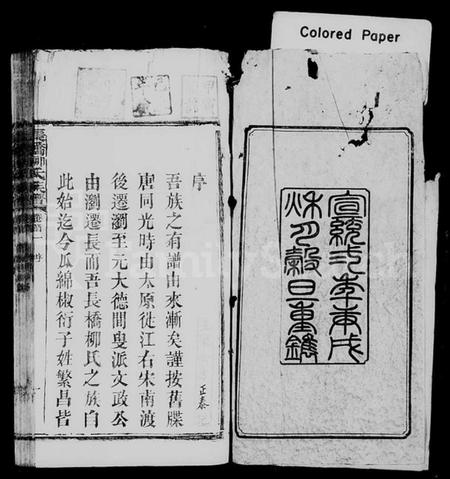 Colored Paper
宣統二年庚戌
秌月穀旦重鐫
序
正泰
吾族之有譜由來漸矣謹按舊牒
唐同光時由太原徙江右宋南渡
後遷瀏至元大德間叟派文政公
由瀏遷長而吾長橋柳氏之族自
此始迄今瓜綿椒衍子姓繁昌皆
長橋柳氏
一
FamilySearch